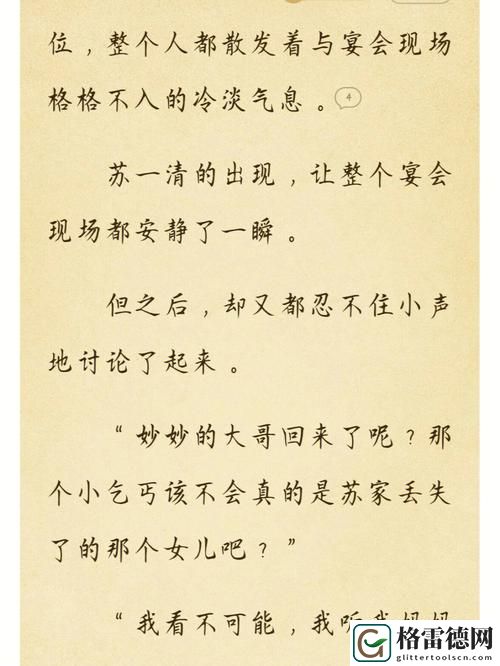 位，整个人都散发着与宴会现场
格格不入的冷淡气息。4
苏一清的出现，让整个宴会
现场都安静了一瞬。
但之后，却又都忍不住小声
地讨论了起来。
“妙妙的大哥回来了呢？那
个小乞丐该不会真的是苏家丢失
了的那个女儿吧？”
“我看不可能，我听我妈妈
格雷德网
glittertoolscn.com